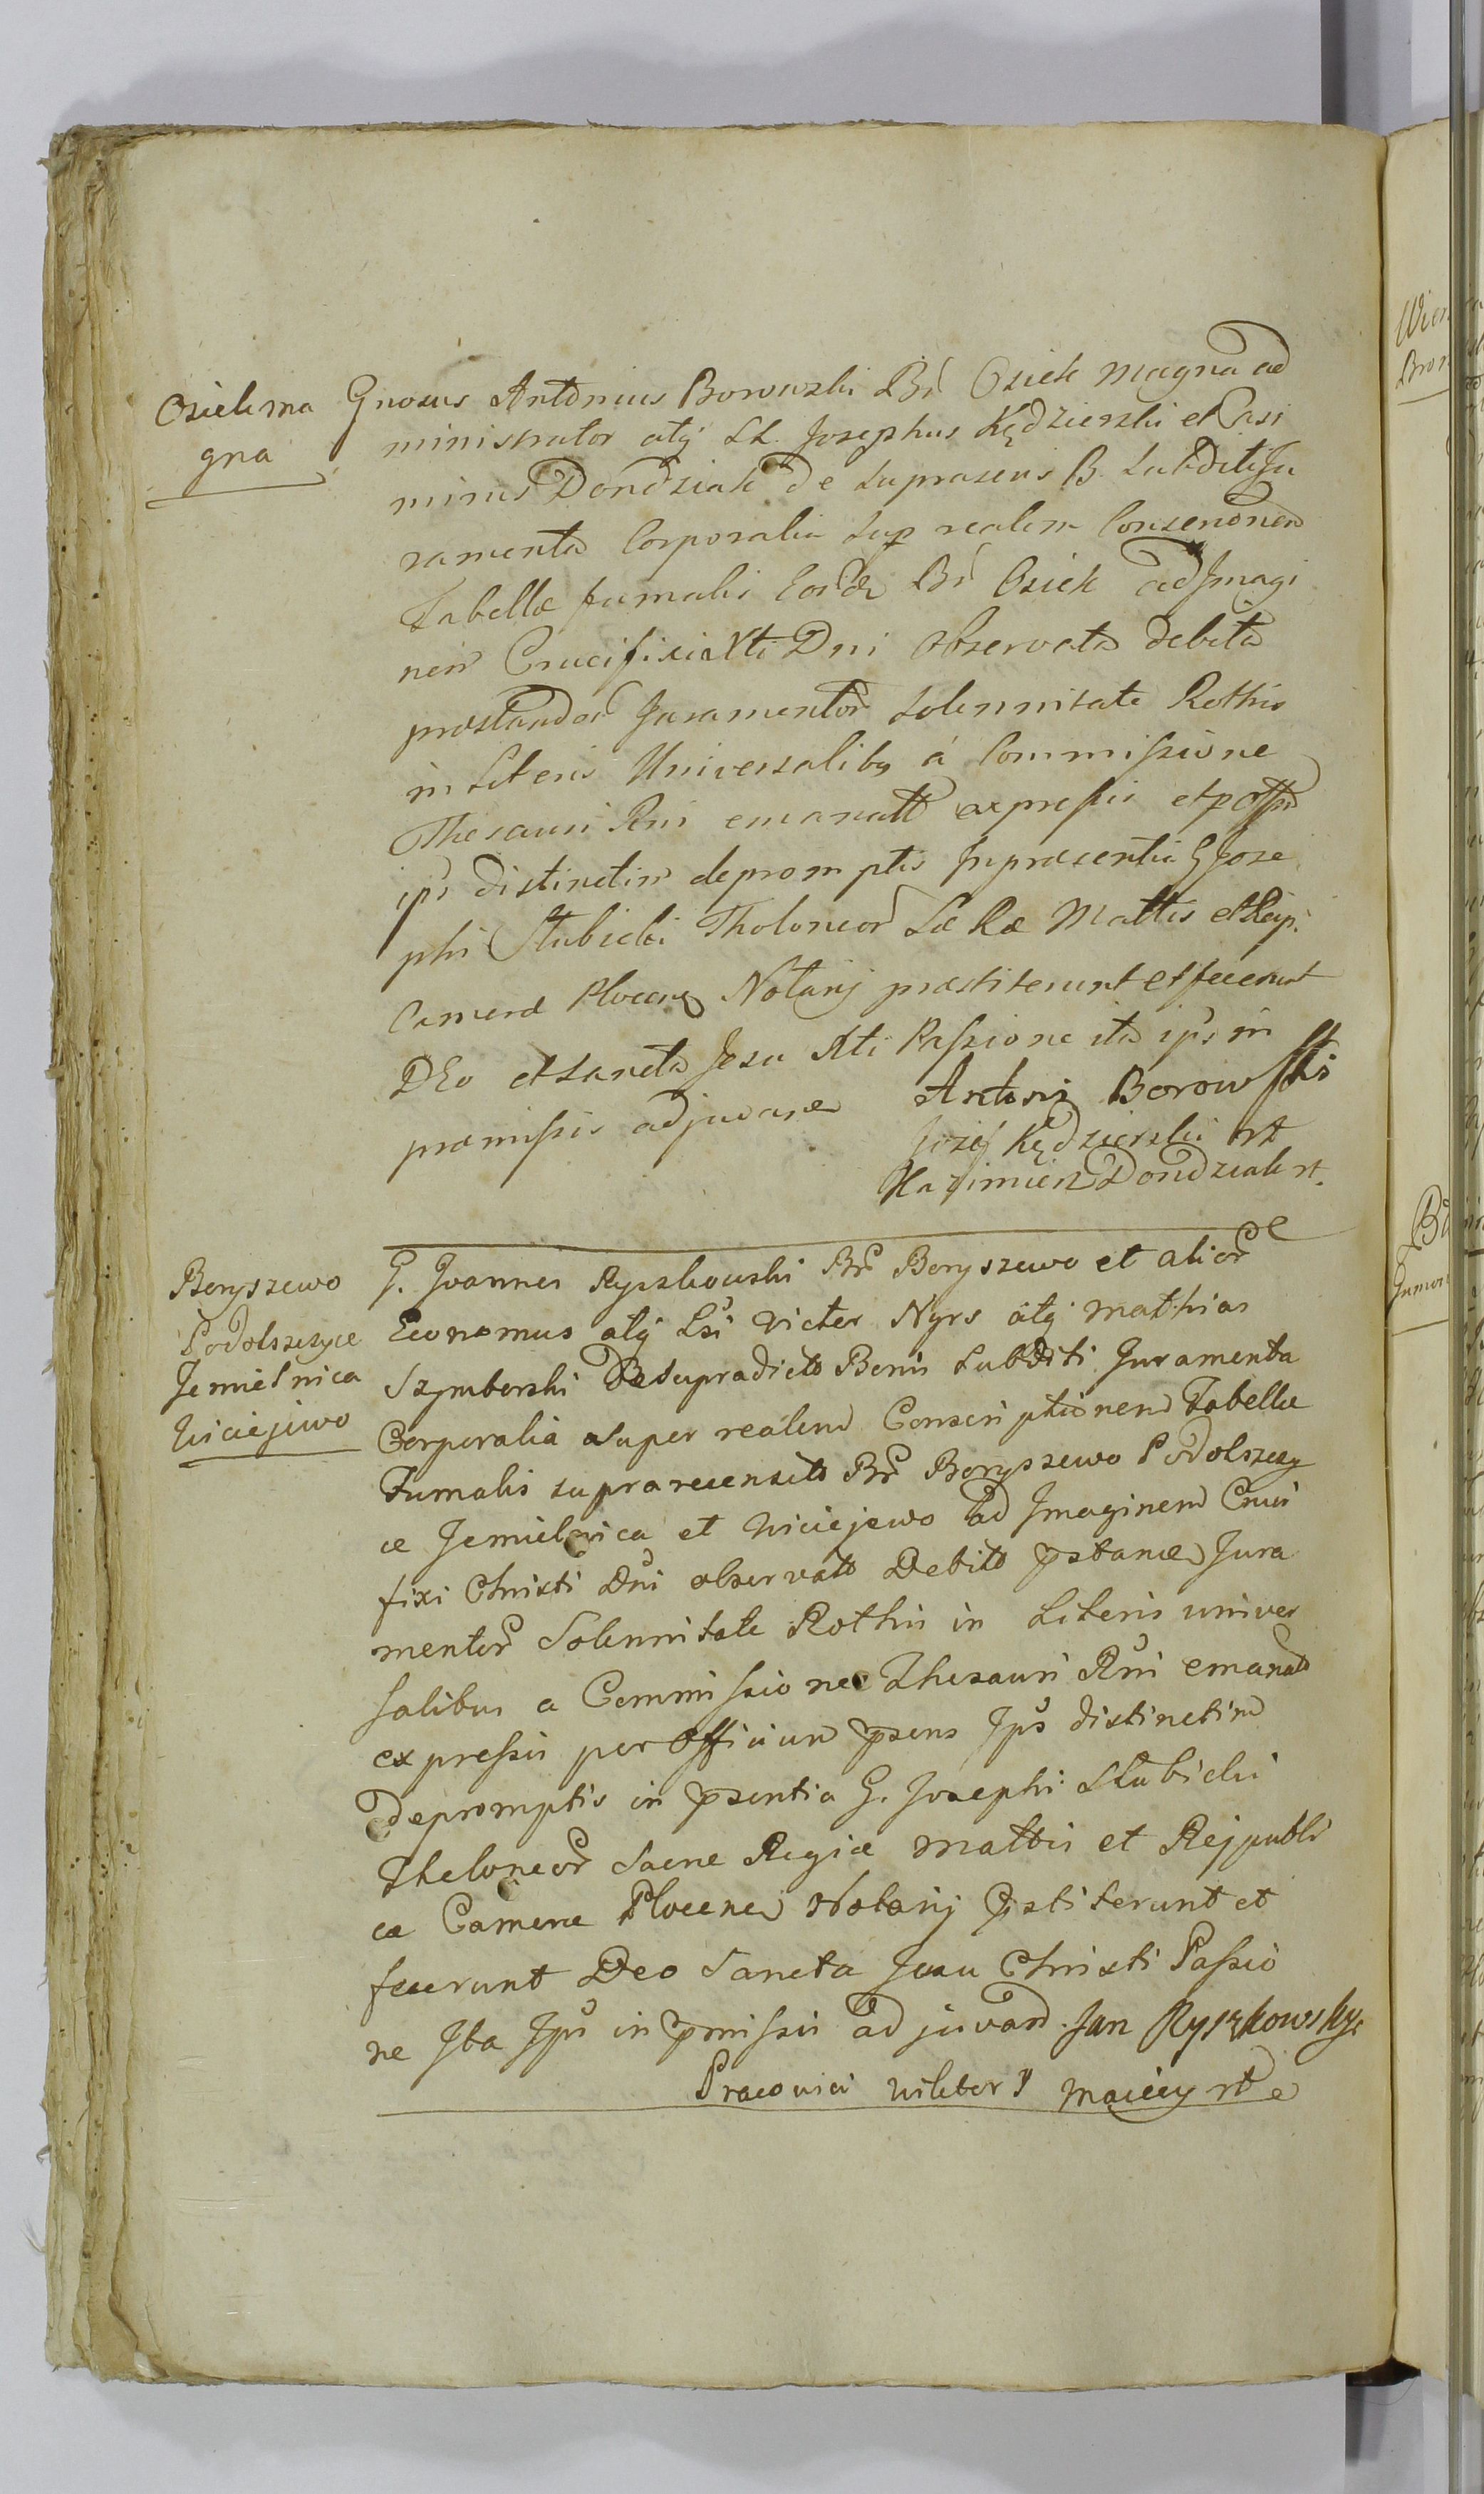 Osiek ma
gna
Gnosus Antonius Borowski Br Osiek Magna ad
ministrator atq LL. Josephus Kędzierski et Casi
mirus Dondziak de supra scris B. Subditi Ju
ramenta Corporalia sup realem Conscriōnem
Tabellæ fumalis Eorde Br Osiek ad Imagi
nem Crucifixi Xti Dni observata debita
præstandor Juramentor Solennitate Rothis
in Literis Universalibq á Commissione
Thesauri Rni emanatt expressis et p Offm
ips distinctim depromptis In præsentia G Jose
phi Słubicki Theloneor Sæ Ræ Mattis et Reip.
Cameræ Plocens Notarij præstiterunt et fecerunt
DEo et Sancta Jesu Xti Passione ita ips in
præmissis adjuvare Antoni Borowski
Józef Kędzierski rt
Kazimierz Dondziak rt.
Boryszewo
Podolszyce
Jemielnica
Niciejewo
G. Joannes Ryszkowski Br Boryszewo et alior
Economus atq Lsi Victor Nyrs atq Mathias
Szymborski De supradictis Bonis Subditi Juramenta
Corporalia super realem Conscriptionem Tabellæ
Fumalis supra recensitt Br Boryszewo Podolszczy
ce Jemielnica et Niciejewo ad Imaginem Cruci
fixi Christi Dni observatt Debitt pstance Jura
mentor Solennitate Rothis in Literis univer
salibus a Commissione Thesauri Rni emanatt
expressis per Officium psens Jps distinctim
Depromptis in psentia G. Josephi Słubicki
Theloneor Sacræ Regiæ Mattis et Rejpubli
cæ Cameræ Plocens Notarij pstiterunt et
fecerunt Deo Sancta Jesu Christi Passio
ne Ita Jps in pmissis ad juvand. Jan Ryszkowsky
Pracowici Wiktor y Maciey rt